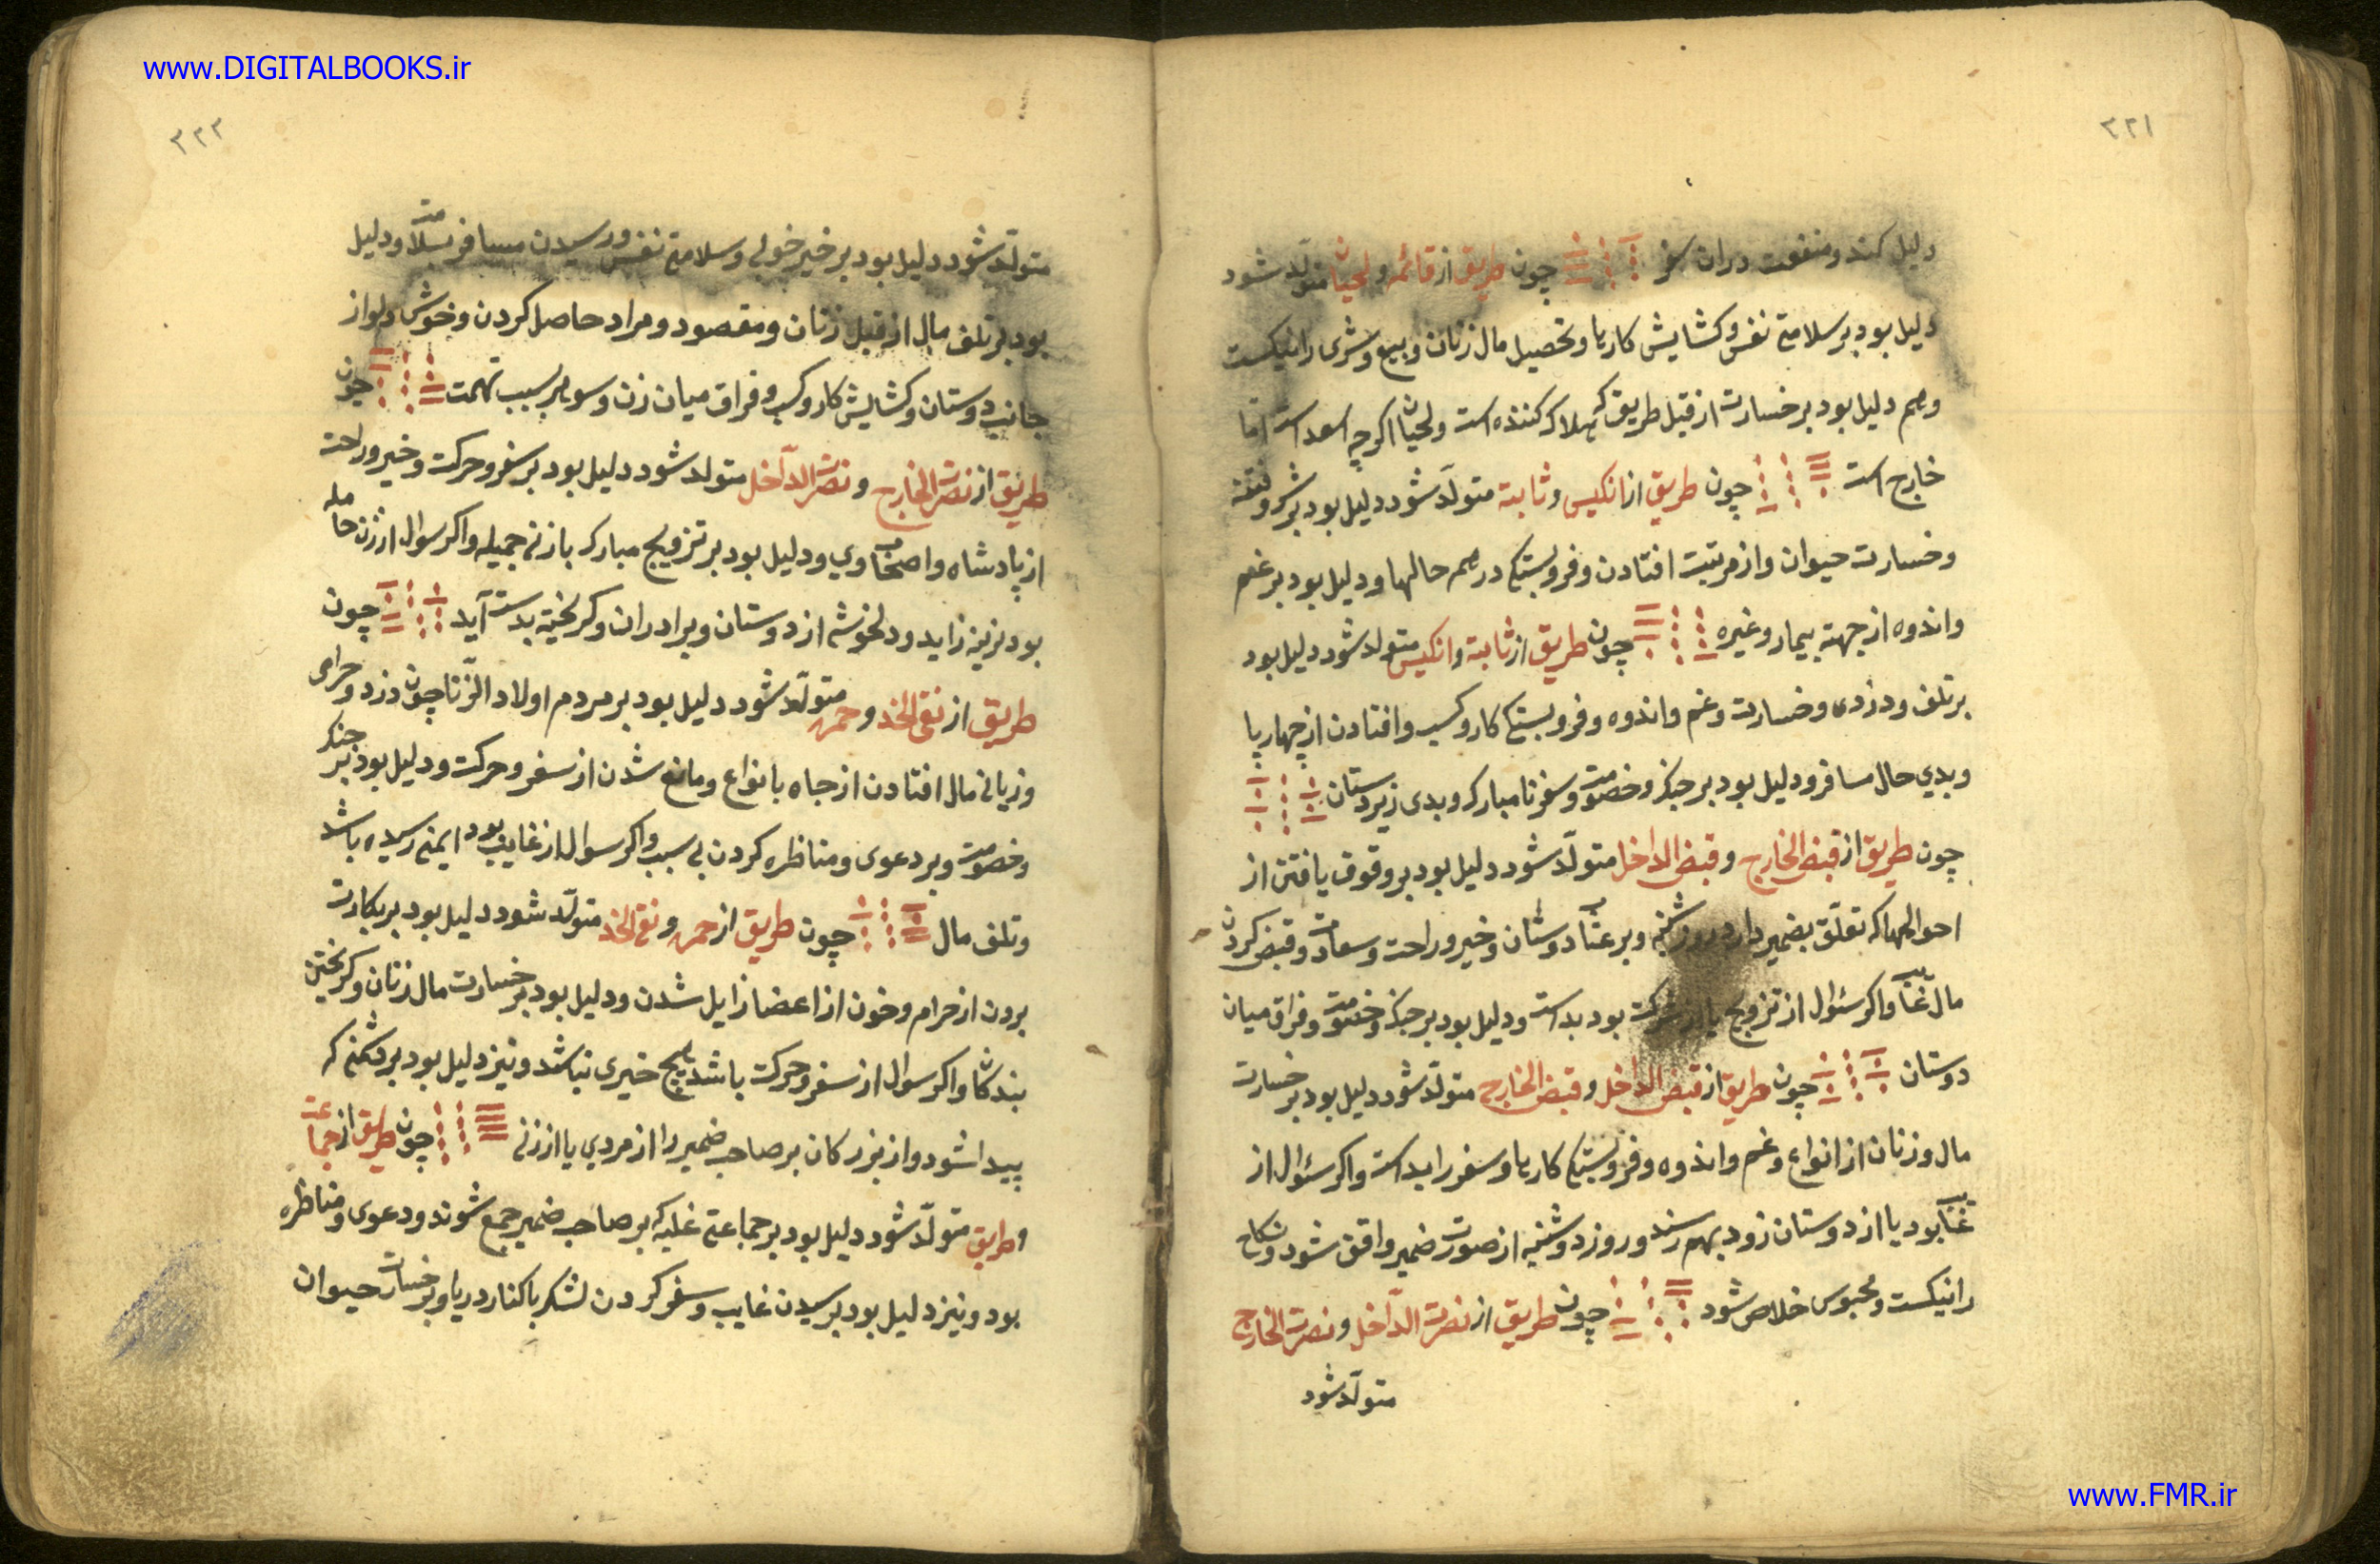 www.DIGITALBOOKS.ir
۳۲۱
دلیل کند و منفعت در ان سفر چون طریق از قائمه و لحیان متولد شود
دلیل بود بر سلامتی نفس و کشایش کارها و تحصیل مال زنان و بیع و شری را نیکست
و هم دلیل بود بر خسارت از قبل طریق که هلاک کننده است و لحیان اکرچه اسعد است اما
خارج است چون طریق از انکیس و ثابتة متولّد شود دلیل بود بر شر و فتنه
و خسارت حیوان و از مرتبت افتادن و فروبستکی در همه حالها و دلیل بود بر غم
و اندوه از جهتة بیمار و غیره چون طریق از ثابتة و انکیس متولد شود دلیل بود
بر تلف و دزدی و خسارت و غم و اندوه و فروبستکی کار و کسب و افتادن از چهارپا
و بدی حال مسافر و دلیل بود بر جنک و خصومت و سفر نامبارک و بدی زیردستان
چون طریق از قبض الخارج و قبض الداخل متولّد شود دلیل بود بر وقوف یافتن از
احوالها که تعلّق بضمیر دارد روز شنبه و بر عتاب دوستان و خیر و راحت و سعادت و قبض کردن
مال غایب و اکر سئوال از تزویج یا از شرکت بود بد است و دلیل بود بر جنک و خصومت و فراق میان
دوستان چون طریق از قبض الداخل و قبض الخارج متولّد شود دلیل بود بر خسارت
مال و زنان از انواع و غم و اندوه و فروبستکی کارها و سفر را بد است و اکر سئوال از
غایب بود یا از دوستان زود بهم رسند و روز دوشنبه از صورت ضمیر واقف شود و نکاح
را نیکست و محبوس خلاص شود چون طریق از نصرت الدّاخل و نصرت الخارج
متولّد شود
۳۲۲
متولّد شود دلیل بود بر خیر خوبی و سلامتی نفس و رسیدن مسافر بسلامت و دلیل
بود بر تلف مال از قبل زنان و مقصود و مراد حاصل کردن و خوش دلی از
جانب دوستان و کشایش کار و کسب و فراق میان زن و شوهر بسبب تهمت چون
طریق از نصرت الخارج و نصرت الدّاخل متولد شود دلیل بود بر سفر و حرکت و خیر و راحت
از پادشاه و اصحاب وی و دلیل بود بر تزویج مبارک با زنی جمیله و اکر سوال از زن حامله
بود نرینه زاید و دلخوشی از دوستان و برادران و کریخته بدست آید چون
طریق از نقی الخد و حمره متولّد شود دلیل بود بر مردم اولاد الزّنا چون دزد و حرامی
و زیانی مال افتادن از جاه بانواع و مانع شدن از سفر و حرکت و دلیل بود بر جنک
و خصومت و بر دعوی و مناظره کردن بی سبب و اکر سوال از غایب بود ایمنی رسیده باشد
و تلف مال چون طریق از حمره و نقی الخد متولّد شود دلیل بود بر بکارت
بردن از حرام و خون از اعضا زایل شدن و دلیل بود بر خسارت مال زنان و کریختن
بندکان و اکر سوال از سفر و حرکت باشد هیچ خیری نباشد و نیز دلیل بود بر دشمنی که
پیدا شود و از بزرکان بر صاحب ضمیر را از مردی یا از زنی چون طریق از جماعت
و طریق متولّد شود دلیل بود بر جماعتی غلبه که بر صاحب ضمیر جمع شوند و دعوی و مناظره
بود و نیز دلیل بود بر رسیدن غایب و سفر کردن لشکر با کنار دریا و بر خسارت حیوان
www.FMR.ir